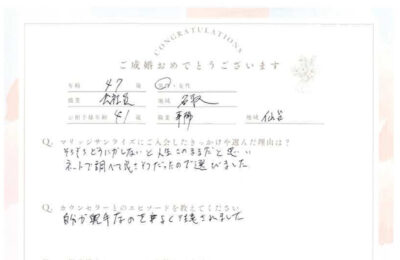 CONGRATULATIONS
ご成婚おめでとうございます
年齢 47 歳 男性・女性
職業 会社員 地域 名取
お相手様年齢 41 歳 職業 事務 地域 仙台
Q. マリッジサンライズにご入会したきっかけや選んだ理由は?
そろそろどうにかしないと人生このままだと思い
ネットで調べて良さそうだったので選びました
Q. カウンセラーとのエピソードを教えてください
自分が
なのを
されました